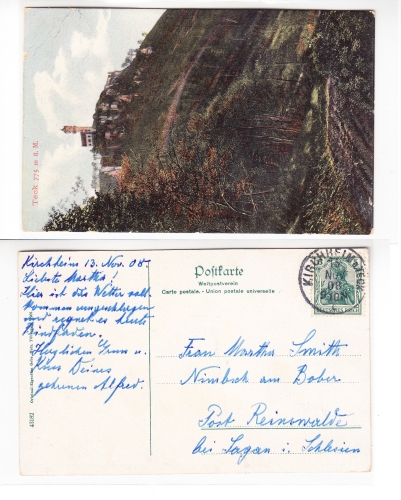 Teck 775 m ü. M.
Kirchheim 13. Nov. 08
Liebste Martha!
Hier ist das Wetter voll-
kommen umgeschlagen
und regnet es heute
Bindfaden.
Herzlichen Gruss u.
Kuss Deines
getreuen Alfred.
Postkarte
Weltpostverein
Carte postale. - Union postale universelle
KIRCHHEIM
Frau Martha Smith
Nimbsch am Bober
Post Reinswalde
bei Sagan i. Schlesien